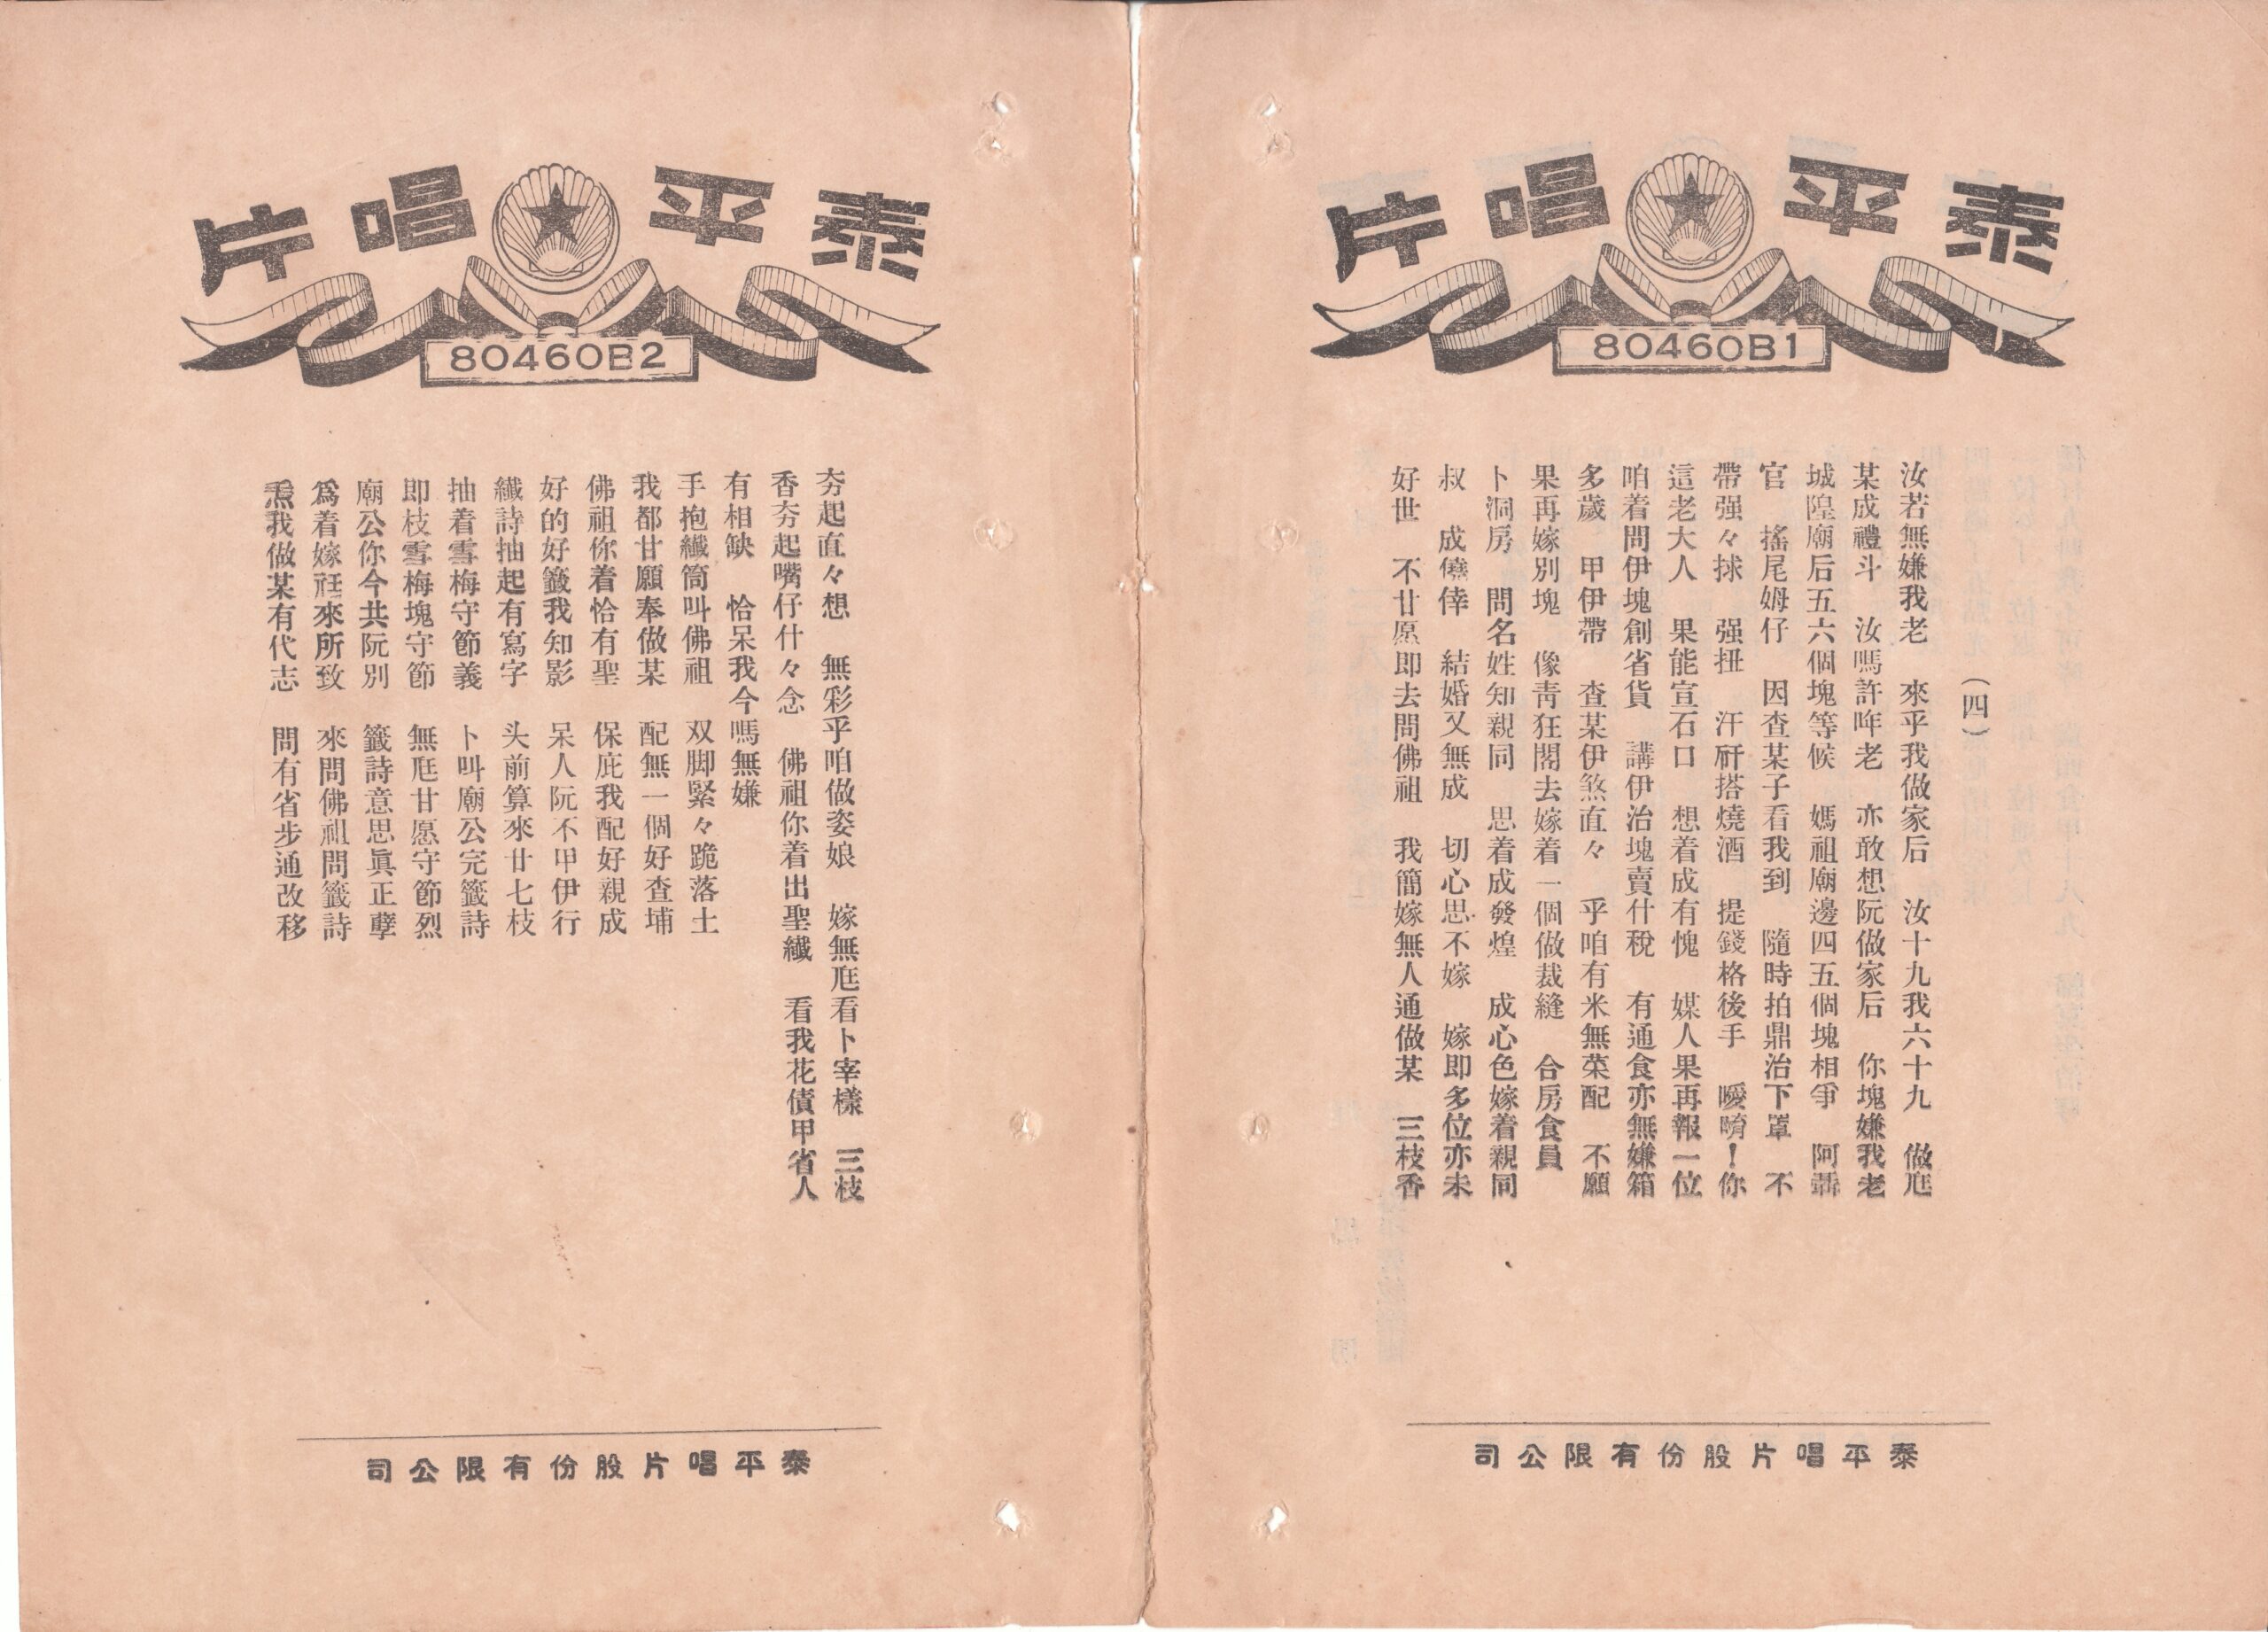 泰平唱片
80460B1
(四)
汝若無嫌我老　來乎我做家后　汝十九我六十九　做尫
某成禮斗　汝嗎許哖老　亦敢想阮做家后　你塊嫌我老
城隍廟后五六個塊等候　媽祖廟邊四五個塊相爭　阿
官　搖尾姆仔　因查某子看我到　隨時拍鼎治下罩　不
帶强々捄　强扭　汗硏搭燒酒　提錢格後手　噯唷！你
這老大人　果能宣石口　想着成有愧　媒人果再報一位
咱着問伊塊創省貨　講伊治塊賣什稅　有通食亦無嫌箱
多歲　甲伊帶　查某伊煞直々　乎咱有米無菜配　不願
果再嫁別塊　像靑狂閣去嫁着一個做裁縫　合房食員
卜洞房　問名姓知親同　思着成發煌　成心色嫁着親同
叔　成僥倖　結婚又無成　切心思不嫁　嫁即多位亦未
好世　不甘愿即去問佛祖　我簡嫁無人通做某　三枝香
泰平唱片股份有限公司
泰平唱片
80460B2
夯起直々想　無彩乎咱做姿娘　嫁無尫看卜宰樣　三枝
香夯起嘴仔什々念　佛祖你着出聖纎　看我花債甲省人
有相缺　恰呆我今嗎無嫌
手抱纎筒叫佛祖　双脚緊々跪落土
我都甘願奉做某　配無一個好查埔
佛祖你着恰有聖　保庇我配好親成
好的好籤我知影　呆人阮不甲伊行
纎詩抽起有寫字　头前算來廿七枝
抽着雪梅守節義　卜叫廟公完籤詩
即枝雪梅塊守節　無尫甘愿守節烈
廟公你今共阮別　籤詩意思眞正孽
爲着嫁尫來所致　來問佛祖問籤詩
𤆬我做某有代志　問有省步通改移
泰平唱片股份有限公司